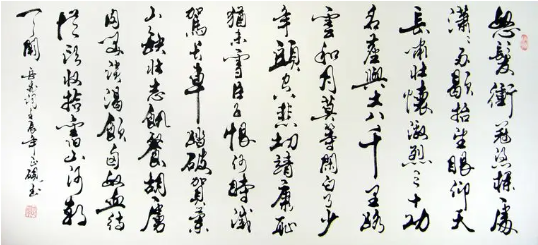 怒髮衝冠憑欄處
瀟瀟雨歇抬望眼仰天
長嘯壯懷激烈三十功
名塵與土八千里路
雲和月莫等閑白了少
年頭空悲切靖康恥
猶未雪臣子恨何時滅
駕長車踏破賀蘭
山缺壯志飢餐胡虜
肉笑談渴飲匈奴血待
從頭收拾舊山河朝
天闕 岳飛詞